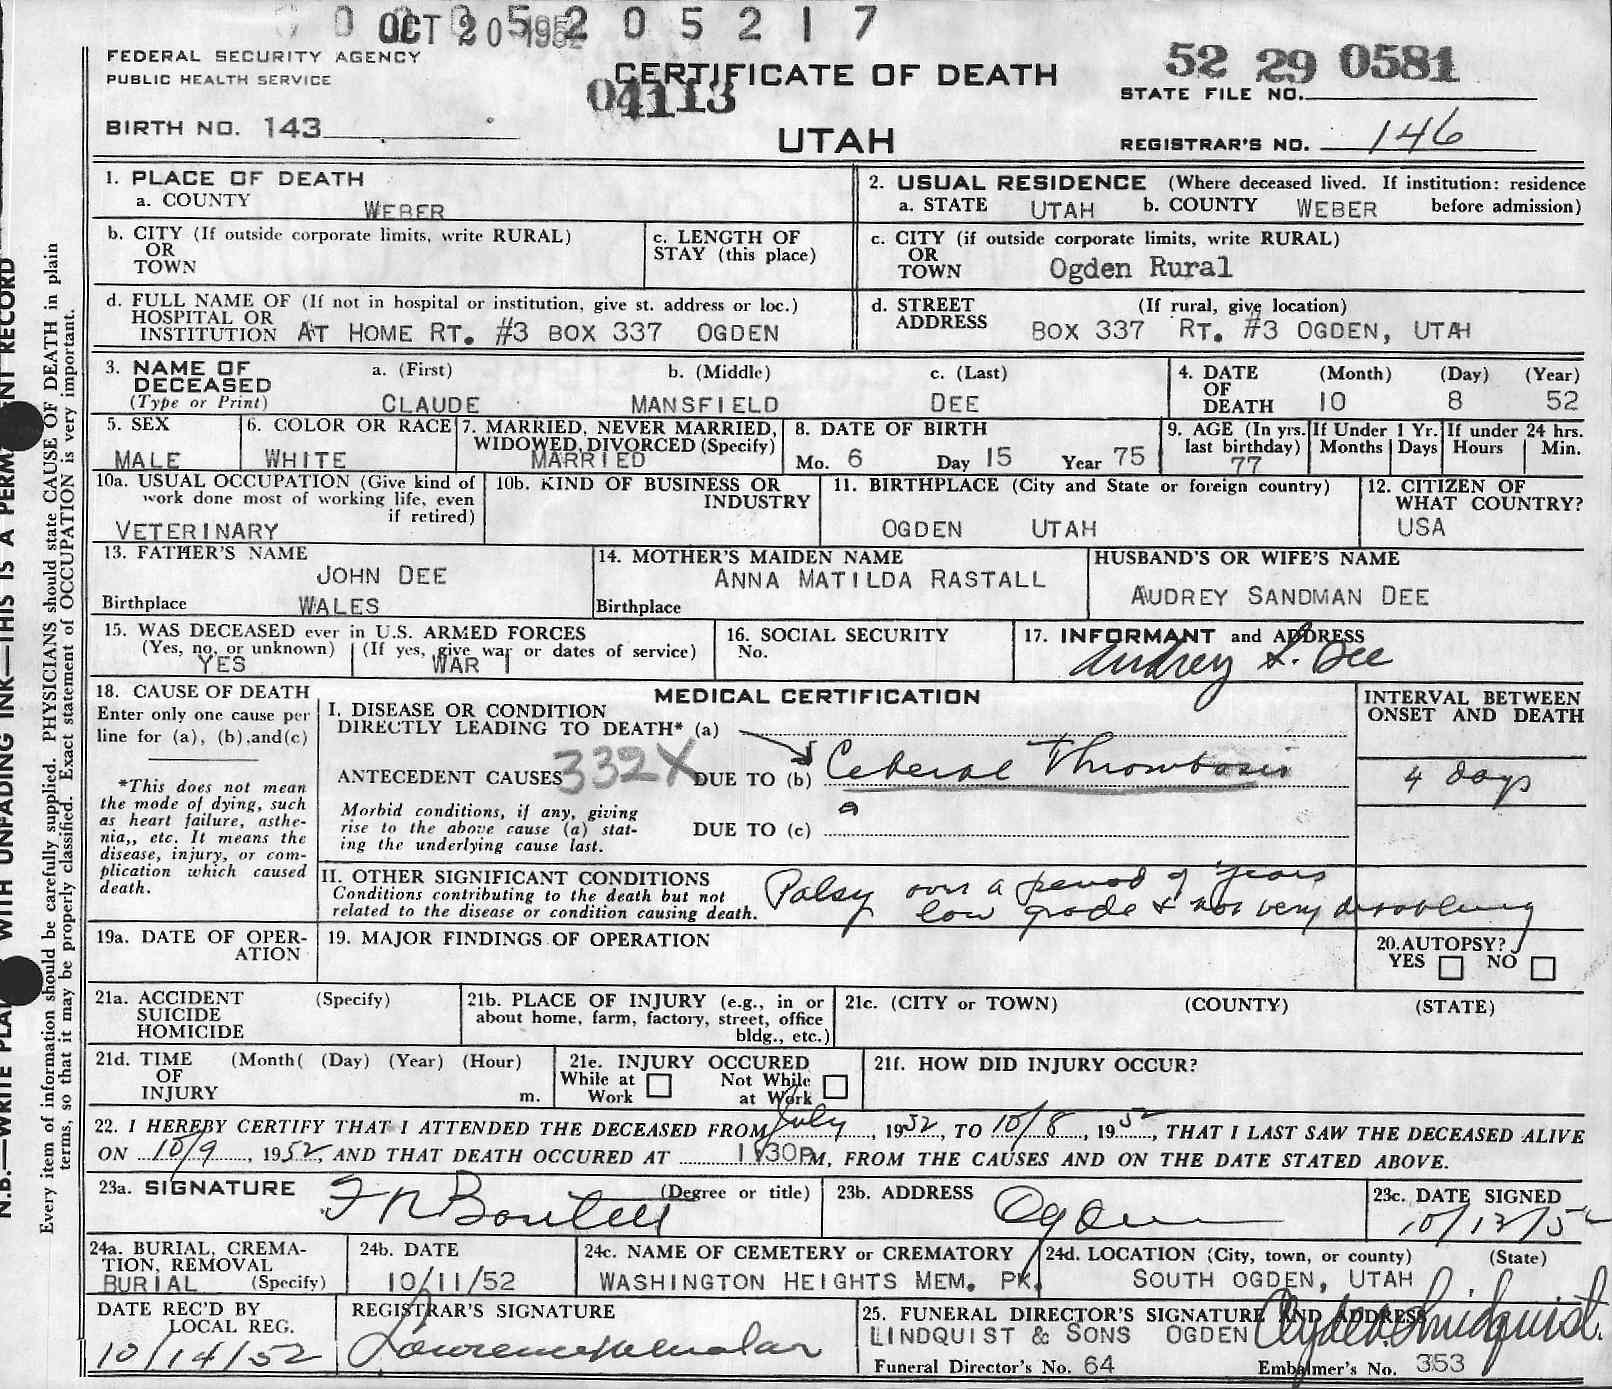 OCT 20 1952
0 5 2 0 5 2 1 7
FEDERAL SECURITY AGENCY
PUBLIC HEALTH SERVICE
CERTIFICATE OF DEATH
04113
UTAH
52 29 0581
STATE FILE NO.
BIRTH NO. 143
REGISTRAR'S NO. 146
1. PLACE OF DEATH
a. COUNTY WEBER
2. USUAL RESIDENCE (Where deceased lived. If institution: residence before admission)
a. STATE UTAH b. COUNTY WEBER
b. CITY (If outside corporate limits, write RURAL)
OR
TOWN
c. LENGTH OF
STAY (this place)
c. CITY (if outside corporate limits, write RURAL)
OR
TOWN Ogden Rural
d. FULL NAME OF (If not in hospital or institution, give st. address or loc.)
HOSPITAL OR
INSTITUTION AT HOME RT. #3 BOX 337 OGDEN
d. STREET (If rural, give location)
ADDRESS BOX 337 RT. #3 OGDEN, UTAH
3. NAME OF DECEASED
(Type or Print)
a. (First) b. (Middle) c. (Last)
CLAUDE MANSFIELD DEE
4. DATE OF DEATH (Month) (Day) (Year)
10 8 52
5. SEX
MALE
6. COLOR OR RACE
WHITE
7. MARRIED, NEVER MARRIED,
WIDOWED, DIVORCED (Specify)
MARRIED
8. DATE OF BIRTH
Mo. 6 Day 15 Year 75
9. AGE (In yrs. last birthday)
77
If Under 1 Yr.
Months Days
If under 24 hrs.
Hours Min.
10a. USUAL OCCUPATION (Give kind of
work done most of working life, even
if retired)
VETERINARY
10b. KIND OF BUSINESS OR
INDUSTRY
11. BIRTHPLACE (City and State or foreign country)
OGDEN UTAH
12. CITIZEN OF
WHAT COUNTRY?
USA
13. FATHER'S NAME
JOHN DEE
Birthplace WALES
14. MOTHER'S MAIDEN NAME
ANNA MATILDA RASTALL
Birthplace
HUSBAND'S OR WIFE'S NAME
AUDREY SANDMAN DEE
15. WAS DECEASED ever in U.S. ARMED FORCES
(Yes, no, or unknown) (If yes, give war or dates of service)
YES WAR I
16. SOCIAL SECURITY
No.
17. INFORMANT and ADDRESS
Audrey S. Dee
18. CAUSE OF DEATH
Enter only one cause per
line for (a), (b), and (c)
*This does not mean
the mode of dying, such
as heart failure, asthe-
nia,, etc. It means the
disease, injury, or com-
plication which caused
death.
MEDICAL CERTIFICATION
I. DISEASE OR CONDITION
DIRECTLY LEADING TO DEATH* (a)
ANTECEDENT CAUSES 332X DUE TO (b) Ceberal Thrombosis
Morbid conditions, if any, giving
rise to the above cause (a) stat-
ing the underlying cause last.
DUE TO (c)
INTERVAL BETWEEN
ONSET AND DEATH
4 days
II. OTHER SIGNIFICANT CONDITIONS
Conditions contributing to the death but not
related to the disease or condition causing death.
Palsy over a period of years
low grade & not very disabling
19a. DATE OF OPER-
ATION
19. MAJOR FINDINGS OF OPERATION
20. AUTOPSY?
YES NO
21a. ACCIDENT (Specify)
SUICIDE
HOMICIDE
21b. PLACE OF INJURY (e.g., in or
about home, farm, factory, street, office
bldg., etc.)
21c. (CITY or TOWN) (COUNTY) (STATE)
21d. TIME (Month( (Day) (Year) (Hour)
OF
INJURY m.
21e. INJURY OCCURED
While at Work Not While at Work
21f. HOW DID INJURY OCCUR?
22. I HEREBY CERTIFY THAT I ATTENDED THE DECEASED FROM July, 1952, TO 10/8, 1952, THAT I LAST SAW THE DECEASED ALIVE
ON 10/9, 1952, AND THAT DEATH OCCURED AT 1:30P M, FROM THE CAUSES AND ON THE DATE STATED ABOVE.
23a. SIGNATURE (Degree or title)
23b. ADDRESS
Ogden
23c. DATE SIGNED
10/13/52
24a. BURIAL, CREMA-
TION, REMOVAL
BURIAL (Specify)
24b. DATE
10/11/52
24c. NAME OF CEMETERY or CREMATORY
WASHINGTON HEIGHTS MEM. PK.
24d. LOCATION (City, town, or county) (State)
SOUTH OGDEN, UTAH
DATE REC'D BY
LOCAL REG.
10/14/52
REGISTRAR'S SIGNATURE
25. FUNERAL DIRECTOR'S SIGNATURE AND ADDRESS
LINDQUIST & SONS OGDEN
Funeral Director's No. 64 Embalmer's No. 353
Every item of information should be carefully supplied. PHYSICIANS should state CAUSE OF DEATH in plain
terms, so that it may be properly classified. Exact statement of OCCUPATION is very important.
N.B.—WRITE WITH UNFADING INK—THIS IS A RECORD